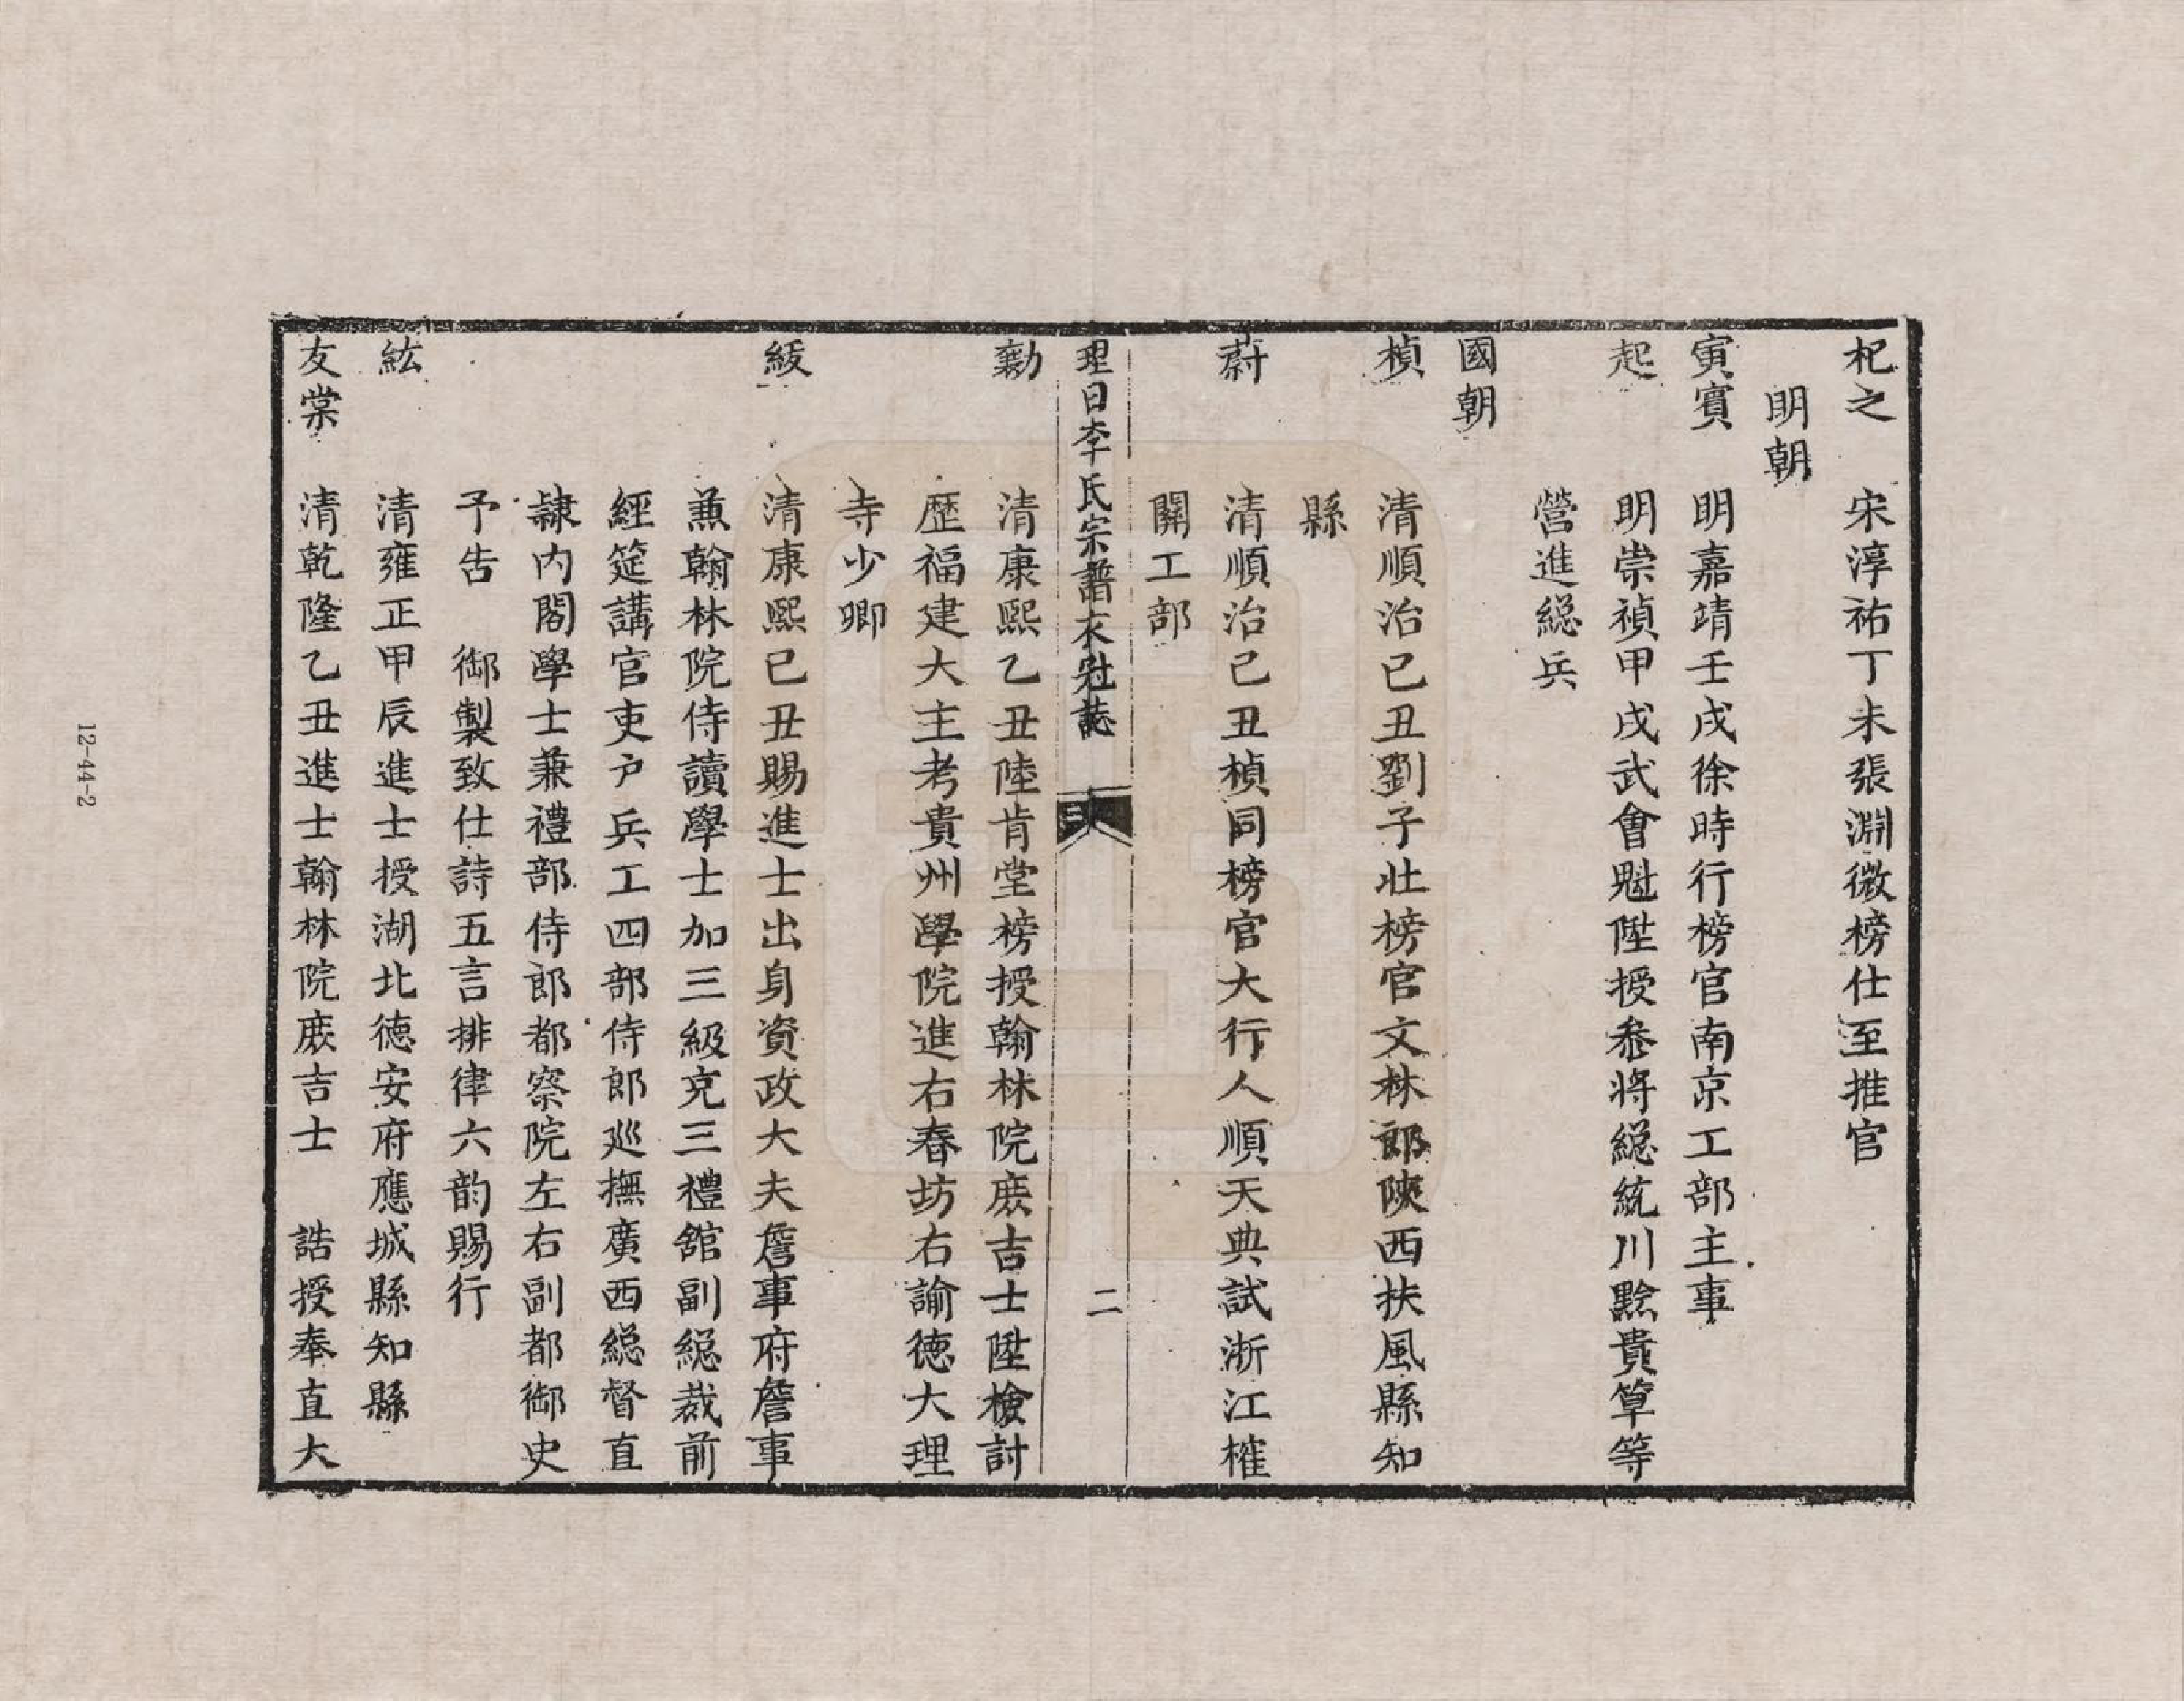 杞之　宋淳祐丁未張淵微榜仕至推官
明朝
寅賓　明嘉靖壬戌徐時行榜官南京工部主事
起　明崇禎甲戌武會魁陞授叅將総統川黔貴筸等
營進総兵
國朝
楨　清順治己丑劉子壯榜官文林郎陝西扶風縣知
縣
蔚　清順治己丑楨同榜官大行人順天典試浙江榷
關工部
理日李氏宗譜衣冠誌　二
勷　清康熙乙丑陸肯堂榜授翰林院庶吉士陞檢討
歷福建大主考貴州學院進右春坊右諭德大理
寺少卿
紱　清康熙己丑賜進士出身資政大夫詹事府詹事
兼翰林院侍讀學士加三級充三禮舘副総裁前
經筵講官吏户兵工四部侍郎廵撫廣西総督直
隸内閣學士兼禮部侍郎都察院左右副都御史
予告　御製致仕詩五言排律六韵賜行
紘　清雍正甲辰進士授湖北德安府應城縣知縣
友棠　清乾隆乙丑進士翰林院庶吉士　誥授奉直大
12-44-2